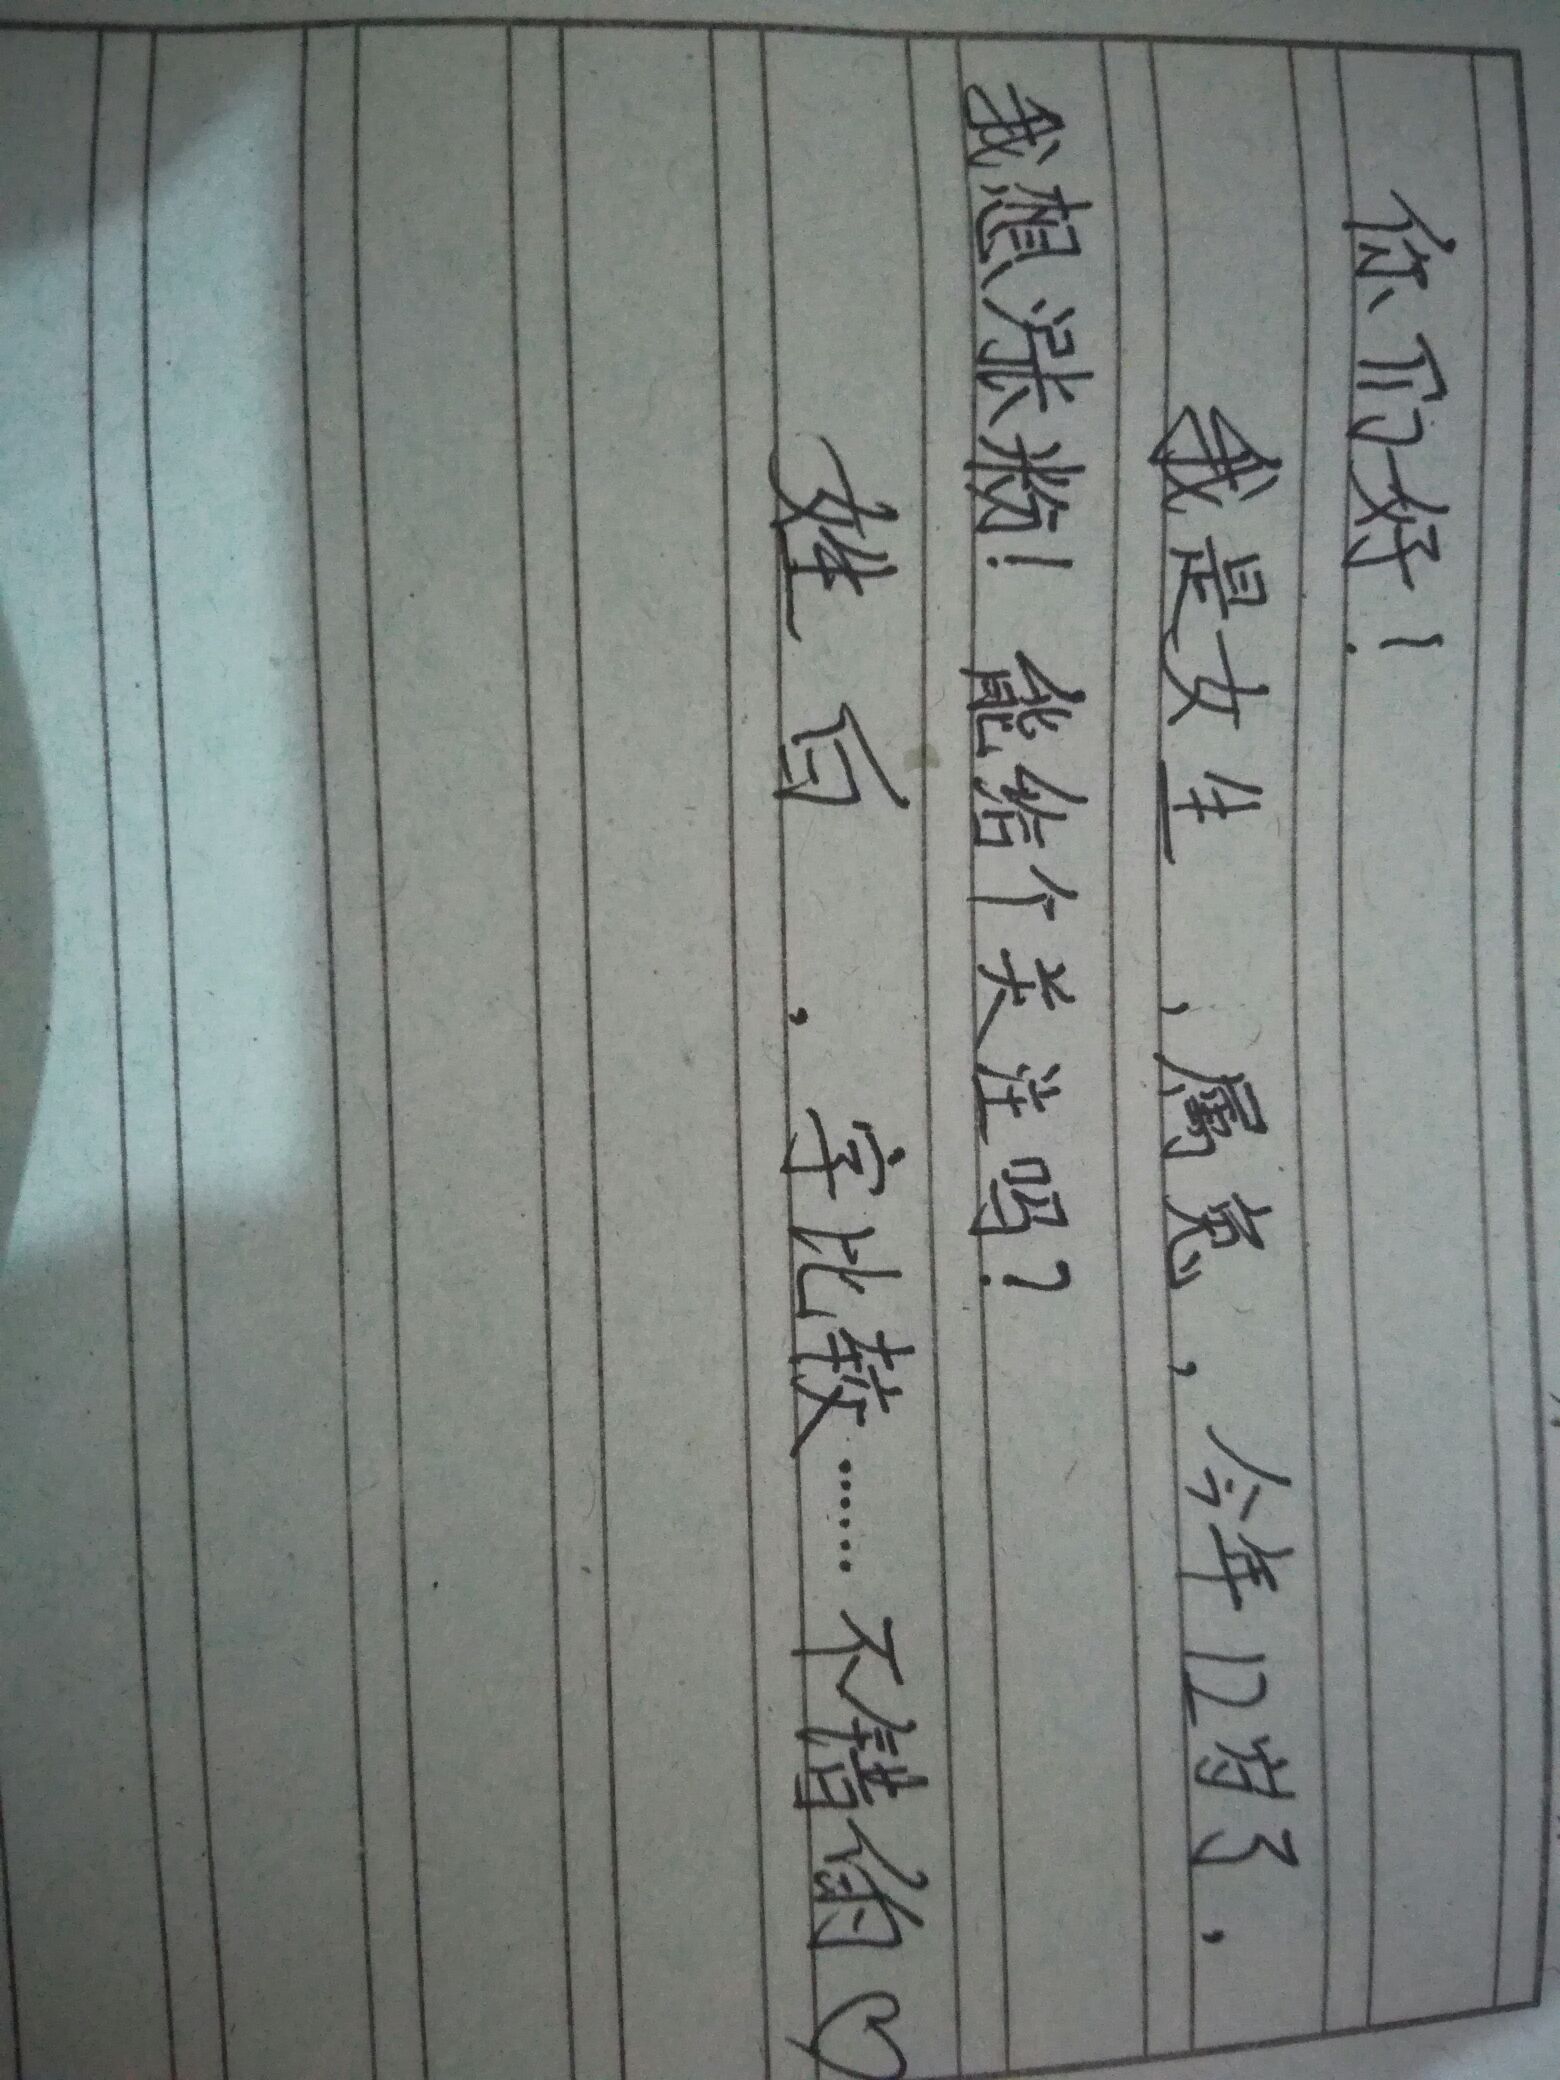 你们好！
我是女生，属兔，今年12岁了，
我想涨粉！能给个关注吗？
姓百，字比较……不错的♡